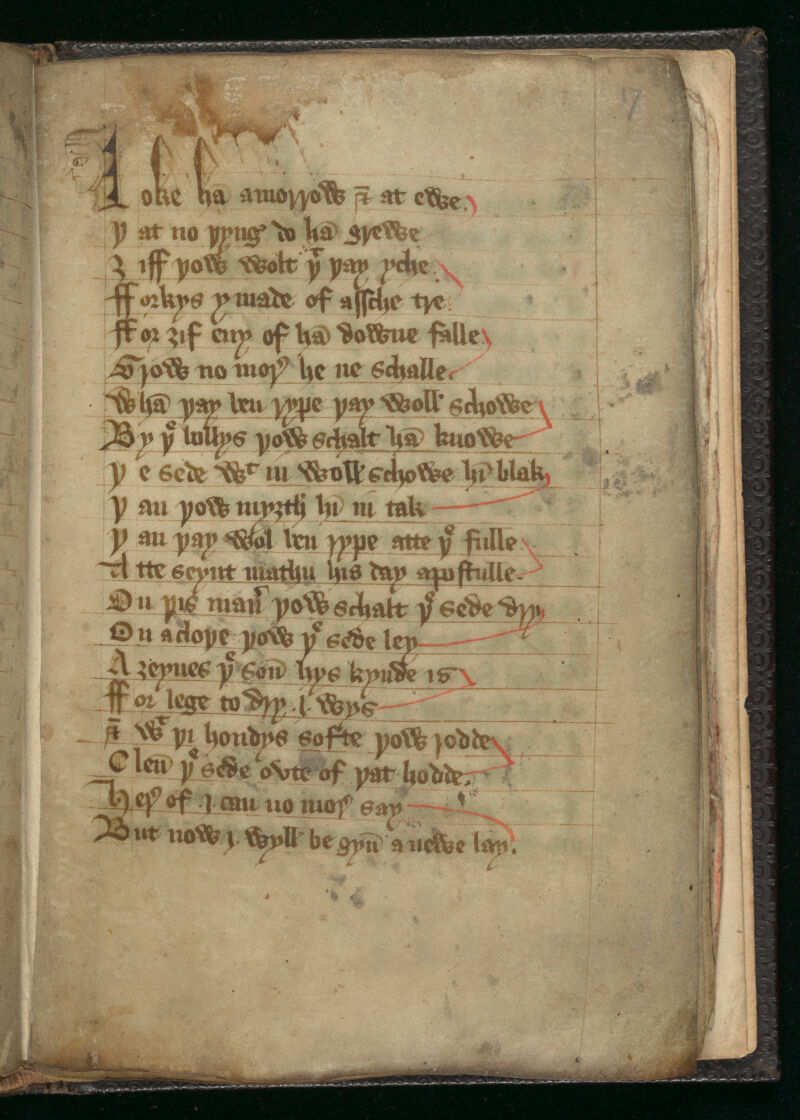 Loke hā amorrow & at ewe
þat no þyng do hā grewe
Ȝiff þow wolt þͭ þay yche
Fforkys ymade of assche tre
Ffor ȝif eny of hā downe falle
Grow no morꝰ he ne schalle
Whā þay ben rype þay woll schowe
By þͤ bollys þow schalt hā knowe
Þe sede wͭ in woll schowe hī blak
Þan þow myȝth hī in tak
Þan þay wol ben rype atte þͤ fulle
Atte seynt mathu his day apostulle.
On þis manꝰ þow schalt þͤ sede dry
On a cloþe þow þͤ sede ley
Aȝeynes þͤ son̄ hys kynde is
Ffor lege to dry .i. wys
& wͭ þi hondys softe þow rodde
Clen̄ þͤ sede ovte of þat hodde.
Herꝰ of .i can no morꝰ say
But now i. wyll be gyn̄ a newe lay.